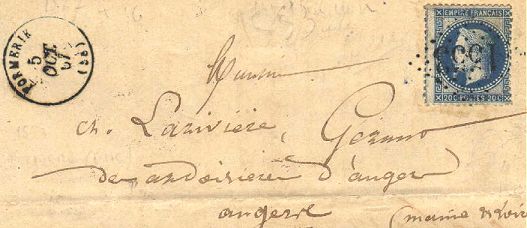 FORMERIE (58)
5
OCT
67
EMPIRE FRANÇAIS
20C POSTES 20C
Monsieur
ch. Larivière, Gérant
des ardoisières d'angers
angers
(maine & Loire